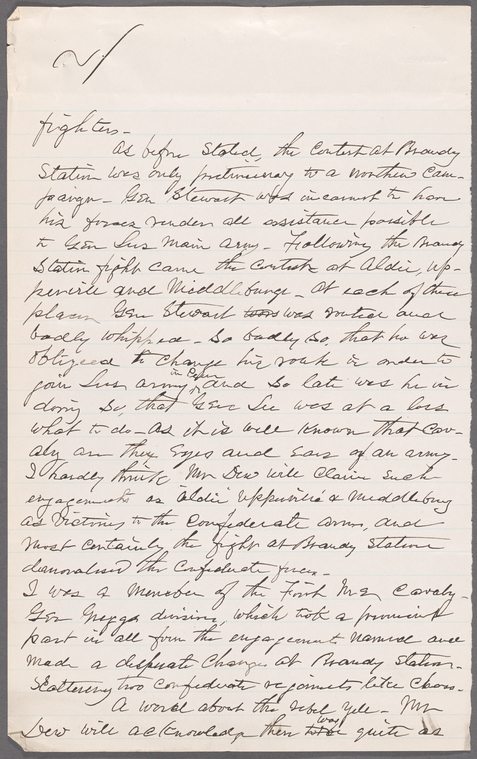 2/
fighters -
As before Stated, the Contest at Brandy
Station was only preliminary to a northern Cam-
paign - Gen Stewart was in earnest to have
his forces render all assistance possible
to Gen Lees main army - Following the Brandy
Station fight came the Contests at Aldie, Up-
perville and Middleburge - At each of these
places Gen Stewart was routed and
badly whipped - So badly So, that he was
obligeed to Change his route in order to
join Lees army in Penn and So late was he in
doing So, that Gen Lee was at a loss
what to do - As it is will Known that Cav-
alry are the Eyes and Ears of an army -
I hardly think Mr Dew will Claim Such
engagements as Aldie Upperville & Middleburg
as Victories to the Confederate arms, and
most Certainly the fight at Brandy Station
demoralised the Confederate forces -
I was a Member of the First Me Cavalry -
Gen Greggs division, which took a prominent
part in all four the engagements named and
made a desperate Charge at Brandy Station -
Scattering two Confederate regiments like Chaos -
A word about the rebel Yell - Mr
Dew will acknowledge there was quite as